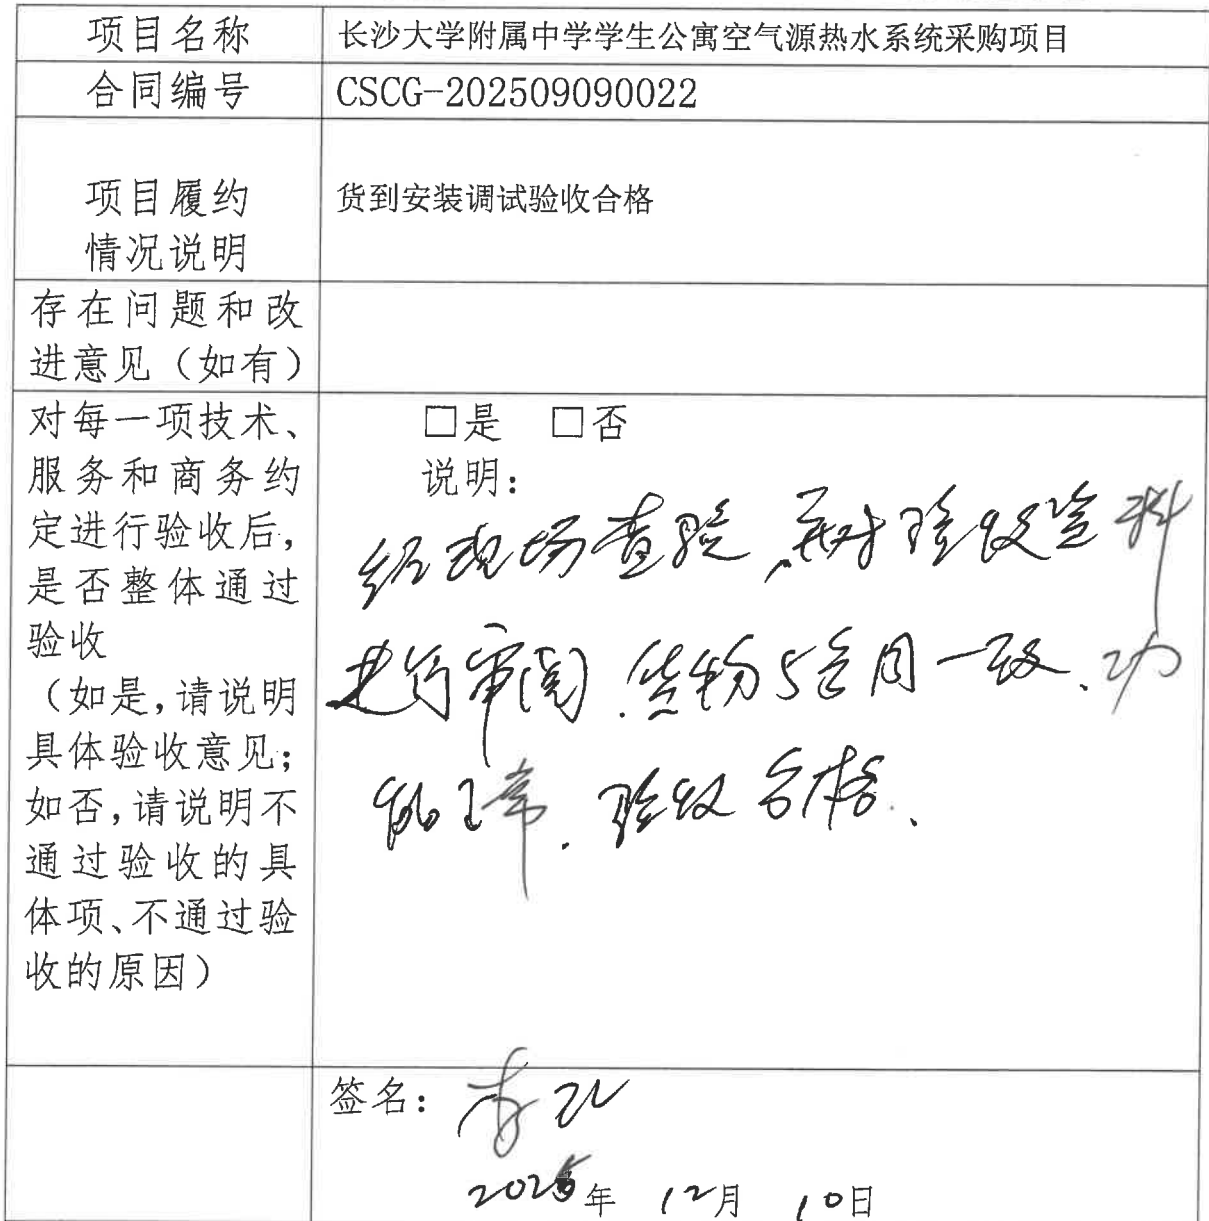 项目名称 长沙大学附属中学学生公寓空气源热水系统采购项目
合同编号 CSCG-202509090022
项目履约
情况说明
货到安装调试验收合格
存在问题和改
进意见（如有）
对每一项技术、
服务和商务约
定进行验收后，
是否整体通过
验收
（如是，请说明
具体验收意见；
如否，请说明不
通过验收的具
体项、不通过验
收的原因）
□是 □否
说明：
经现场查验，并对验收资料
进行审阅.货物与合同一致、功
能正常.验收合格.
签名：
2025年 12月 10日